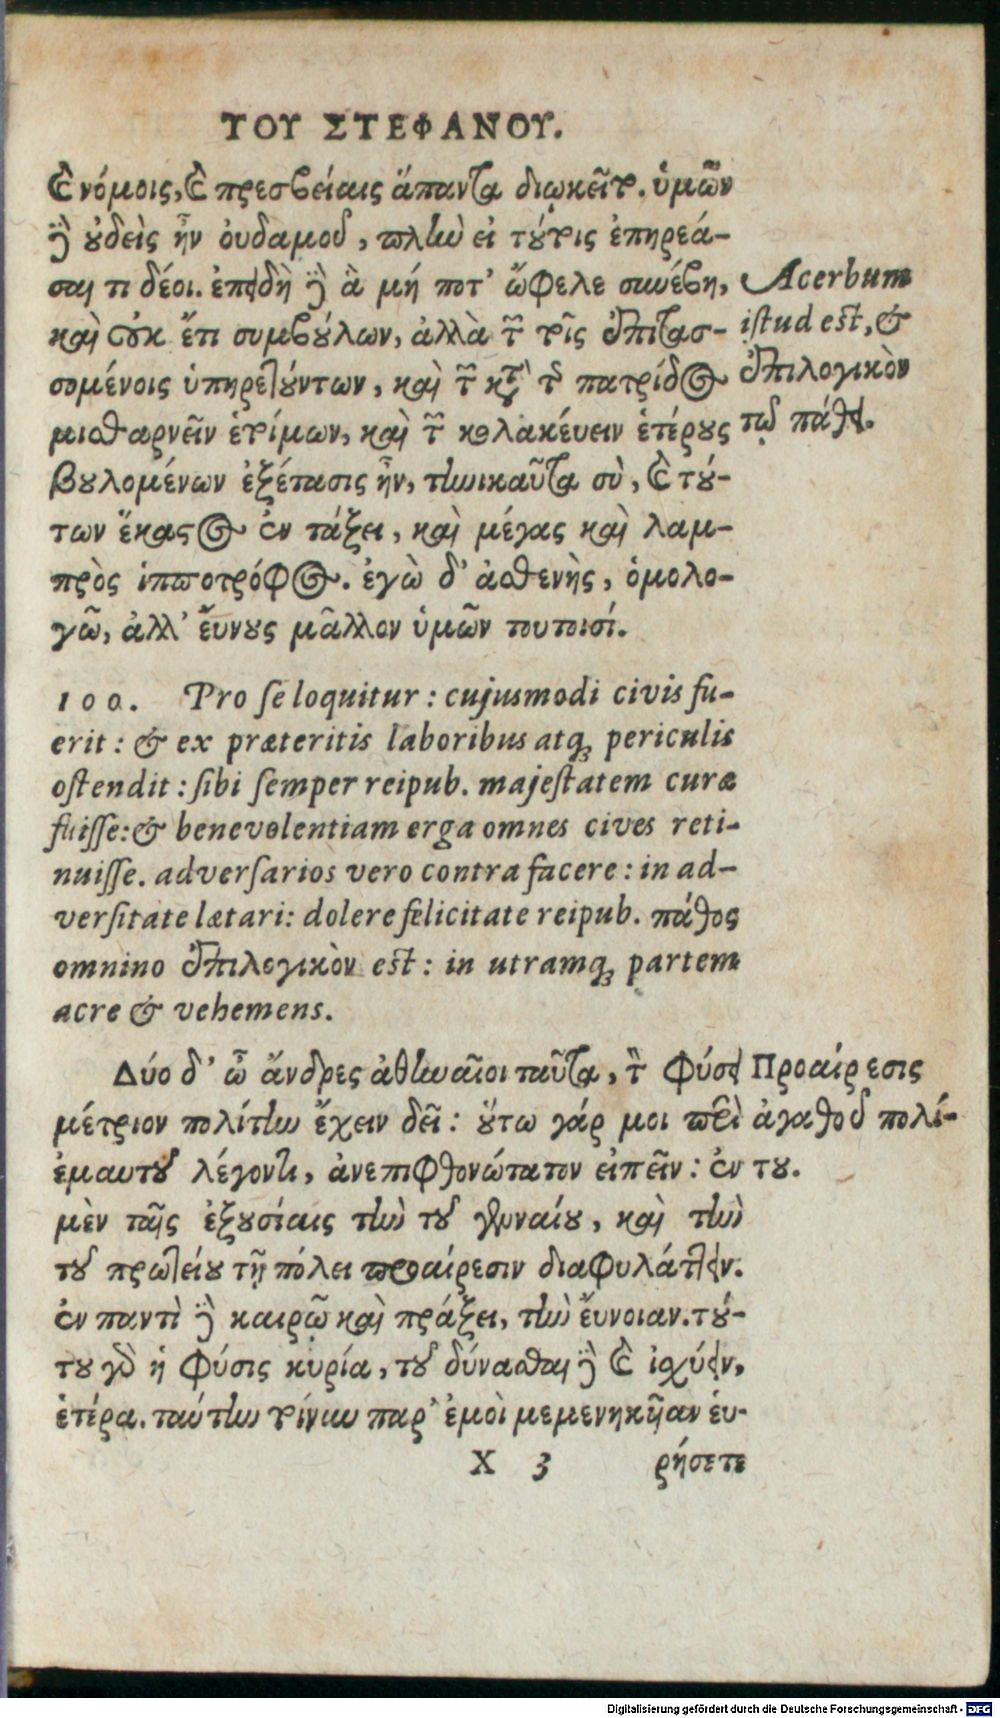 ΤΟΥ ΣΤΕΦΑΝΟΥ.
καὶ νόμοις, καὶ πρεσβείαις ἅπαντα διῳκεῖτο. ὑμῶν
δὲ οὐδεὶς ἦν οὐδαμοῦ, πλὴν εἰ τούτοις ἐπηρεά-
σαι τι δέοι. ἐπειδὴ δὲ ἃ μή ποτ' ὤφελε συνέβη,
καὶ οὐκ ἔτι συμβούλων, ἀλλὰ τῶν τοῖς ἐπιτασ-
σομένοις ὑπηρετούντων, καὶ τῶν κατὰ τῆς πατρίδος
μισθαρνεῖν ἑτοίμων, καὶ τῶν κολακεύειν ἑτέρους
βουλομένων ἐξέτασις ἦν, τηνικαῦτα σὺ, καὶ τού-
των ἕκαστος ἐν τάξει, καὶ μέγας καὶ λαμ-
πρὸς ἱπποτρόφος. ἐγὼ δ' ἀσθενὴς, ὁμολο-
γῶ, ἀλλ' εὔνους μᾶλλον ὑμῶν τουτοισί.
Acerbum
istud est, &
ἐπιλογικὸν
τῷ πάθει.
100. Pro se loquitur: cujusmodi civis fu-
erit: & ex præteritis laboribus atq; periculis
ostendit: sibi semper reipub. majestatem curæ
fuisse: & benevolentiam erga omnes cives reti-
nuisse. adversarios vero contra facere: in ad-
versitate lætari: dolere felicitate reipub. πάθος
omnino ἐπιλεγικὸν est: in utramq; partem
acre & vehemens.
Δύο δ' ὦ ἄνδρες ἀθηναῖοι ταῦτα, τὸν φύσει
μέτριον πολίτην ἔχειν δεῖ: οὕτω γάρ μοι περὶ
ἐμαυτοῦ λέγοντι, ἀνεπιφθονώτατον εἰπεῖν: ἐν
μὲν ταῖς ἐξουσίαις τὴν τοῦ γενναίου, καὶ τὴν
τοῦ πρωτείου τῇ πόλει προαίρεσιν διαφυλάττειν.
ἐν παντὶ δὲ καιρῷ καὶ πράξει, τὴν εὔνοιαν. τού-
του γὰρ ἡ φύσις κυρία, τοῦ δύνασθαι δὲ καὶ ἰσχύειν,
ἑτέρα. ταύτην τοίνυν παρ' ἐμοὶ μεμενηκῆαν εὑ-
Προαίρεσις
ἀγαθοῦ πολί-
του.
X 3 ρήσετε
Digitalisierung gefördert durch die Deutsche Forschungsgemeinschaft - DFG